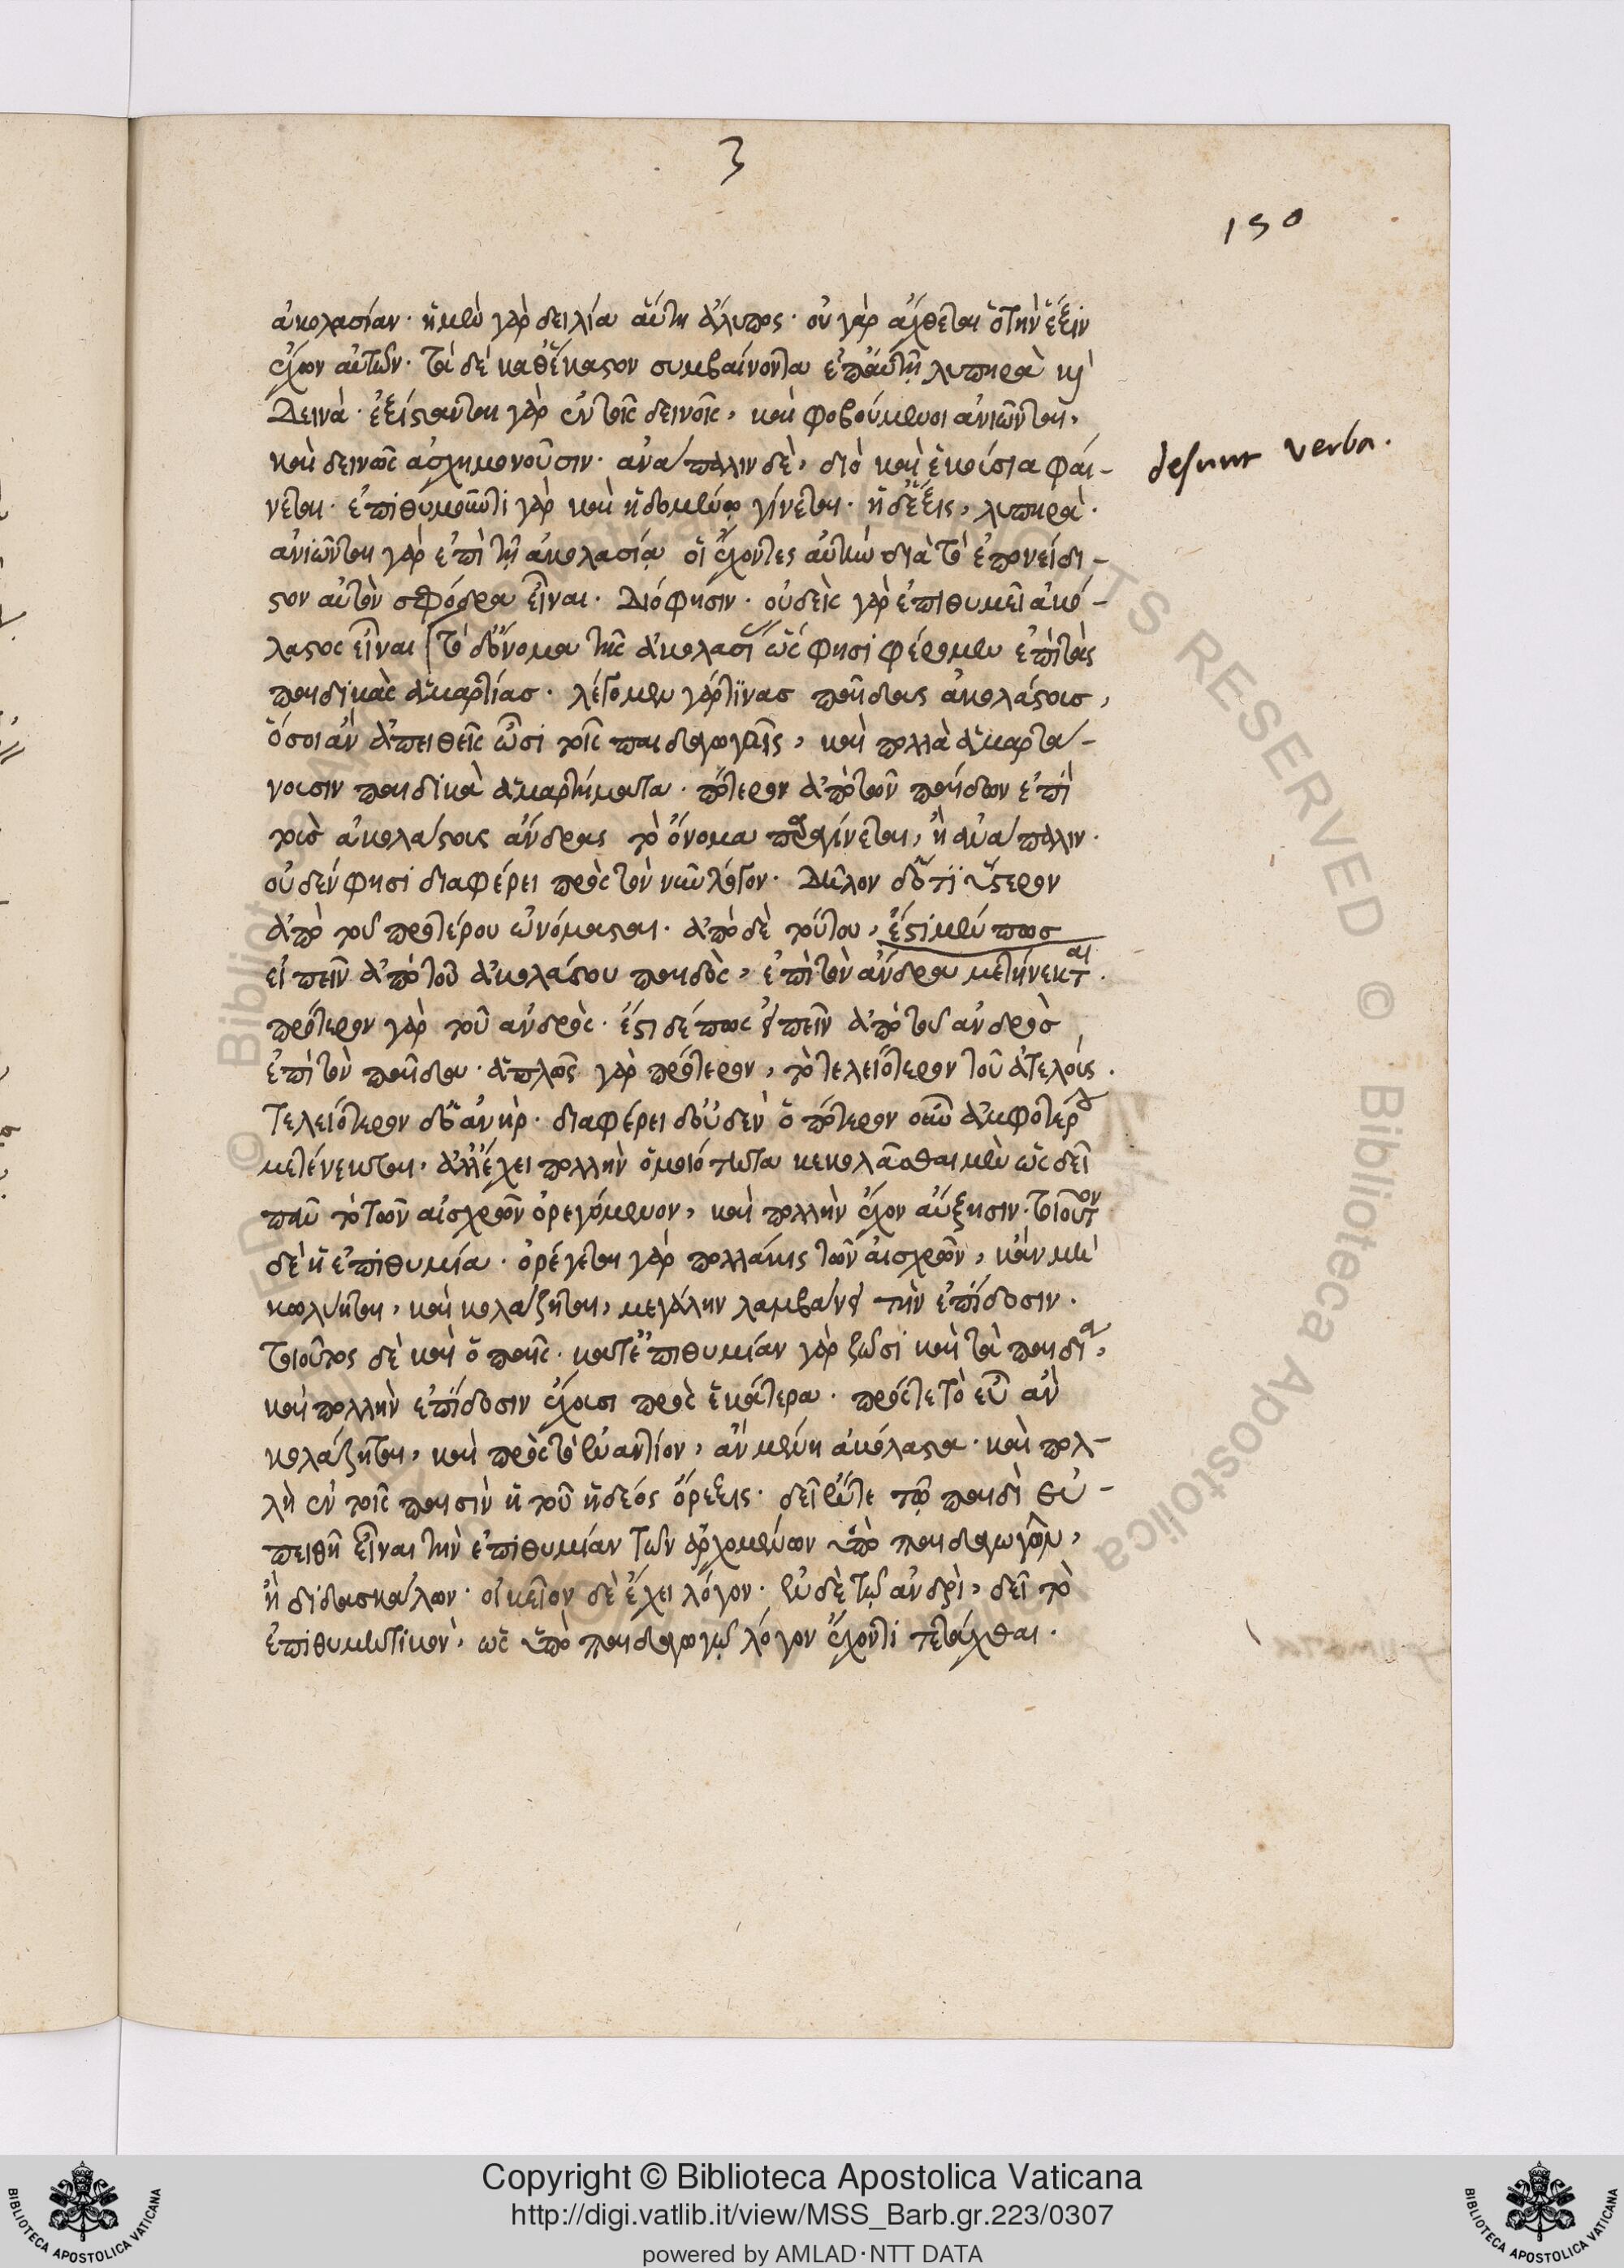 3
150
ἀκολασίαν. ἡ μὲν γὰρ δειλία αὕτη ἄλυπος. οὐ γὰρ ἄχθεται ὁ τὴν ἕξιν
ἔχων αὐτῶν. τὰ δὲ καθ' ἕκαστον συμβαίνοντα ἐπ' αὐτῇ λυπηρὰ καὶ
δεινὰ. ἐξίστανται γὰρ ἐν τοῖς δεινοῖς, καὶ φοβούμενοι ἀνιῶνται,
καὶ δεινῶς ἀσχημονοῦσιν. ἀνάπαλιν δὲ, διὸ καὶ ἑκούσια φαί-
desunt verba.
νεται. ἐπιθυμοῦντι γὰρ καὶ ἡδομένῳ γίνεται. ἡ δ' ἕξις, λυπηρὰ.
ἀνιῶνται γὰρ ἐπὶ τῇ ἀκολασίᾳ οἱ ἔχοντες αὐτὴν διὰ τὸ ἐπονείδι-
στον αὐτὸν σφόδρα εἶναι. Διό φησιν. οὐδεὶς γὰρ ἐπιθυμεῖ ἀκό-
λαστος εἶναι τὸ δ' ὄνομα τῆς ἀκολασί ὥς φησι φέρομεν ἐπὶ τὰς
παιδικὰς ἁμαρτίας. λέγομεν γάρ τινας παῖδας ἀκολάστους,
ὅσοι ἂν ἀπειθεῖς ὦσι τοῖς παιδαγωγοῖς, καὶ πολλὰ ἁμαρτά-
νουσιν παιδικὰ ἁμαρτήματα. πότερον ἀπὸ τῶν παίδων ἐπὶ
τοὺς ἀκολάστους ἄνδρας τὸ ὄνομα παραγίνεται, ἢ ἀνάπαλιν.
οὐδέν φησι διαφέρει πρὸς τὸν νῦν λόγον. Δῆλον δ' ὅτι ὕστερον
ἀπὸ τοῦ προτέρου ὠνόμασται. ἀπὸ δὲ τούτου, ἔστι μέν πως
εἰπεῖν ἀπὸ τοῦ ἀκολάστου παιδὸς, ἐπὶ τὸν ἄνδρα μετήνεκται.
πρότερον γὰρ τοῦ ἀνδρὸς. ἔστι δέ πως εἰπεῖν ἀπὸ τοῦ ἀνδρὸς
ἐπὶ τὸν παῖδα. ἁπλῶς γὰρ πρότερον, τὸ τελειότερον τοῦ ἀτελοῦς.
Τελειότερον δ' ὁ ἀνὴρ. διαφέρει δ' οὐδὲν ὁ πότερον
μετένεκται. ἀλλ' ἔχει πολλὴν ὁμοιότητα κεκολᾶσθαι μὲν ὡς δεῖ
πᾶν τὸ τῶν αἰσχρῶν ὀρεγόμενον, καὶ πολλὴν ἔχον αὔξησιν. τοιοῦτον
δὲ ἡ ἐπιθυμία. ὀρέγεται γὰρ πολλάκις τῶν αἰσχρῶν, κἂν μὴ
κωλύηται, καὶ κολάζηται, μεγάλην λαμβάνει τὴν ἐπίδοσιν.
τοιοῦτος δὲ καὶ ὁ παῖς. κατ' ἐπιθυμίαν γὰρ ζῶσι καὶ τὰ παιδία,
καὶ πολλὴν ἐπίδοσιν ἔχουσι πρὸς ἑκάτερα. πρός τε τὸ εὖ ἂν
κολάζηται, καὶ πρὸς τὸ ἐναντίον, ἂν μένῃ ἀκόλαστα. καὶ πολ-
λὴ ἐν τοῖς παισὶν ἡ τοῦ ἡδέος ὄρεξις. δεῖ ἔν τε τῷ παιδὶ εὐ-
πειθῆ εἶναι τὴν ἐπιθυμίαν τῶν ἀρχομένων ὑπὸ παιδαγωγῶν,
ἢ διδασκάλων. οἰκεῖον δὲ ἔχει λόγον. ἐν δὲ τῷ ἀνδρὶ, δεῖ τὸ
ἐπιθυμητικὸν, ὡς ὑπὸ παιδαγωγῷ λόγον ἔχοντι τετάχθαι.
© Biblioteca Apostolica
RIGHTS RESERVED © Biblioteca Apostolica
BIBLIOTECA APOSTOLICA VATICANA
Copyright © Biblioteca Apostolica Vaticana
http://digi.vatlib.it/view/MSS_Barb.gr.223/0307
powered by AMLAD・NTT DATA
BIBLIOTECA APOSTOLICA VATICANA